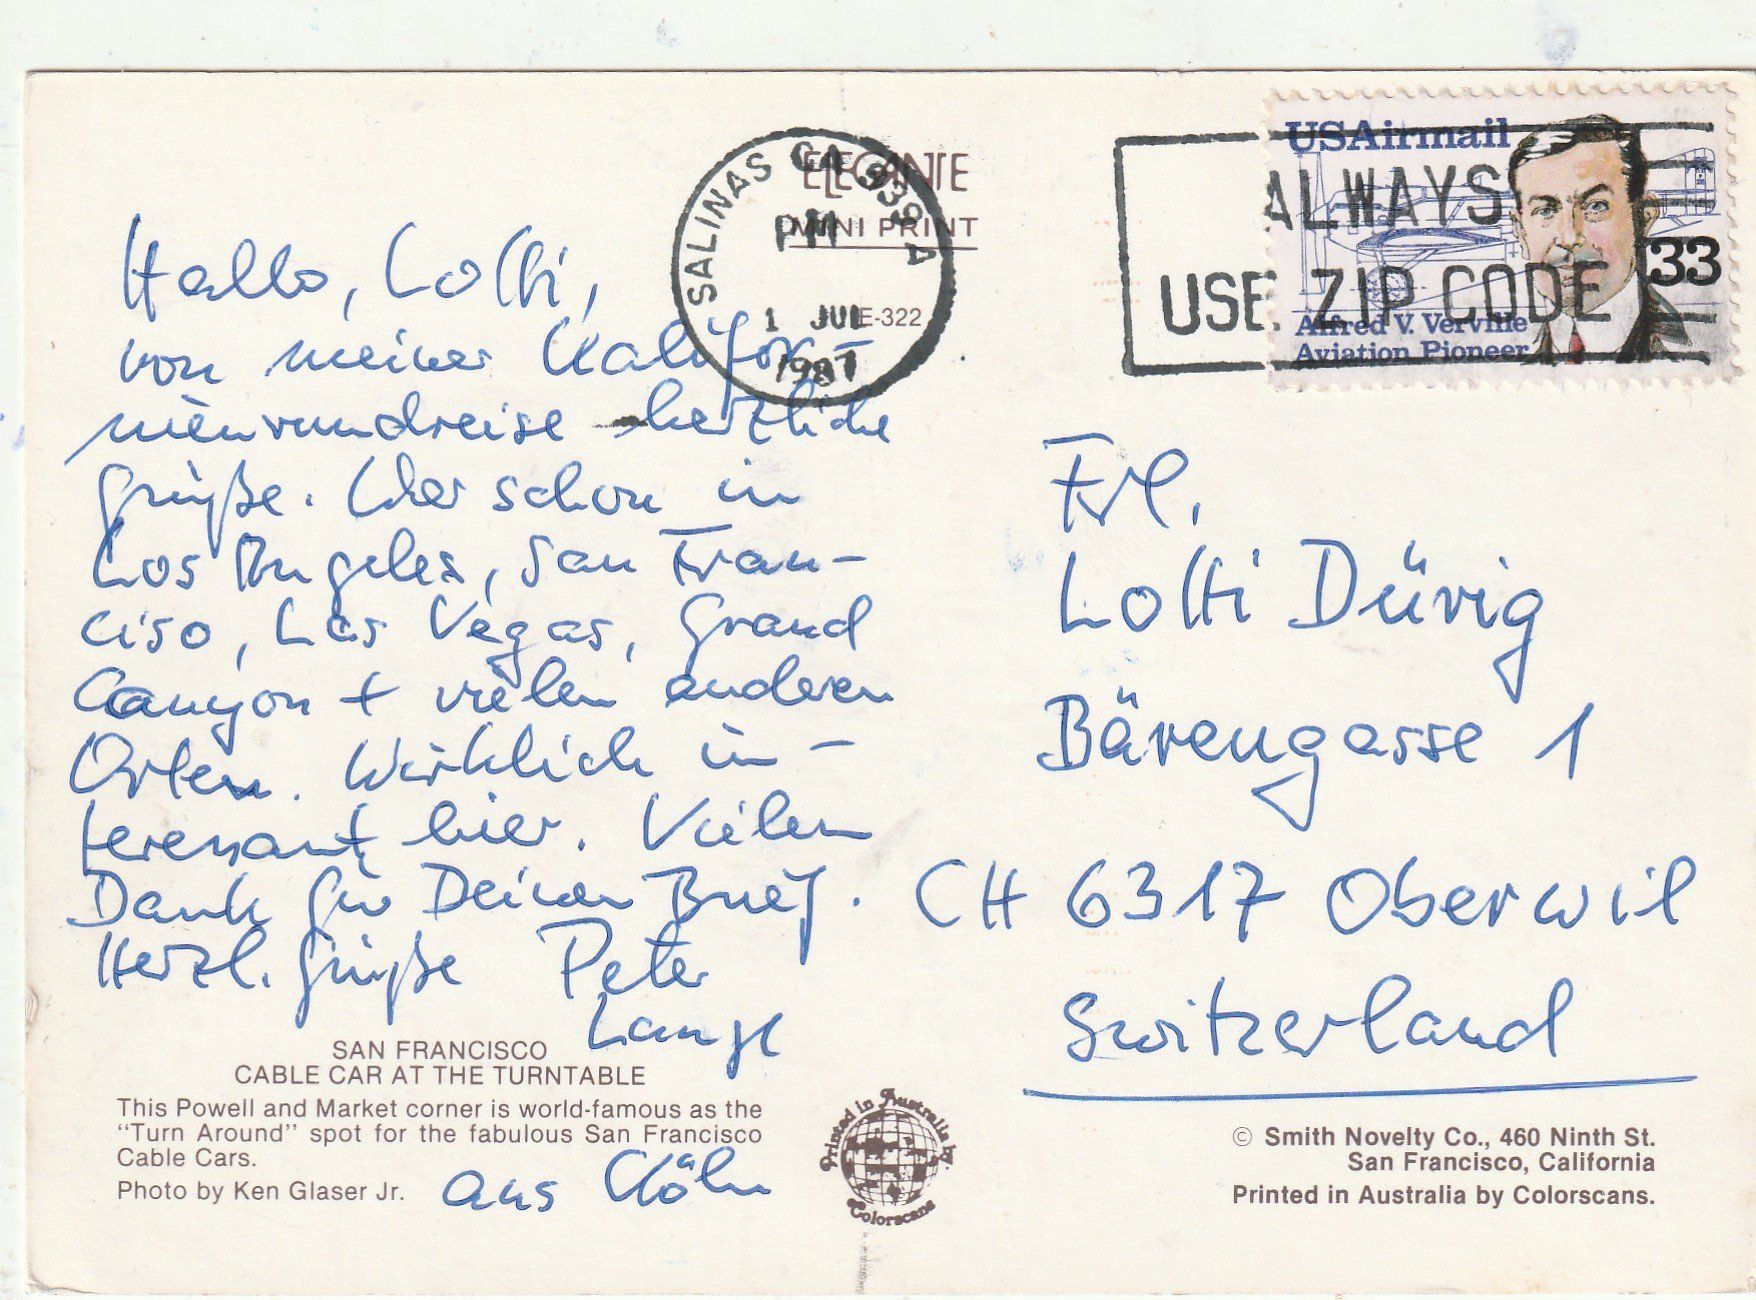 Hallo, Lotti,
von meiner Kalifor-
nienrundreise herzliche
Grüße. War schon in
Los Angeles, San Fran-
ciso, Las Vegas, Grand
Canyon + vielen anderen
Orten. Wirklich in-
teressant hier. Vielen
Dank für Deinen Brief.
Herzl. Grüße Peter
Lange
aus Köln
SAN FRANCISCO
CABLE CAR AT THE TURNTABLE
This Powell and Market corner is world-famous as the
"Turn Around" spot for the fabulous San Francisco
Cable Cars.
Photo by Ken Glaser Jr.
ELEGANTE
MINI PRINT
E-322
SALINAS CA
PM
1 JUL
1987
USAirmail
33
Alfred V. Verville
Aviation Pioneer
ALWAYS
USE ZIP CODE
Frl.
Lotti Dürig
Bärengasse 1
CH 6317 Oberwil
Switzerland
Printed in Australia by
Colorscans
© Smith Novelty Co., 460 Ninth St.
San Francisco, California
Printed in Australia by Colorscans.